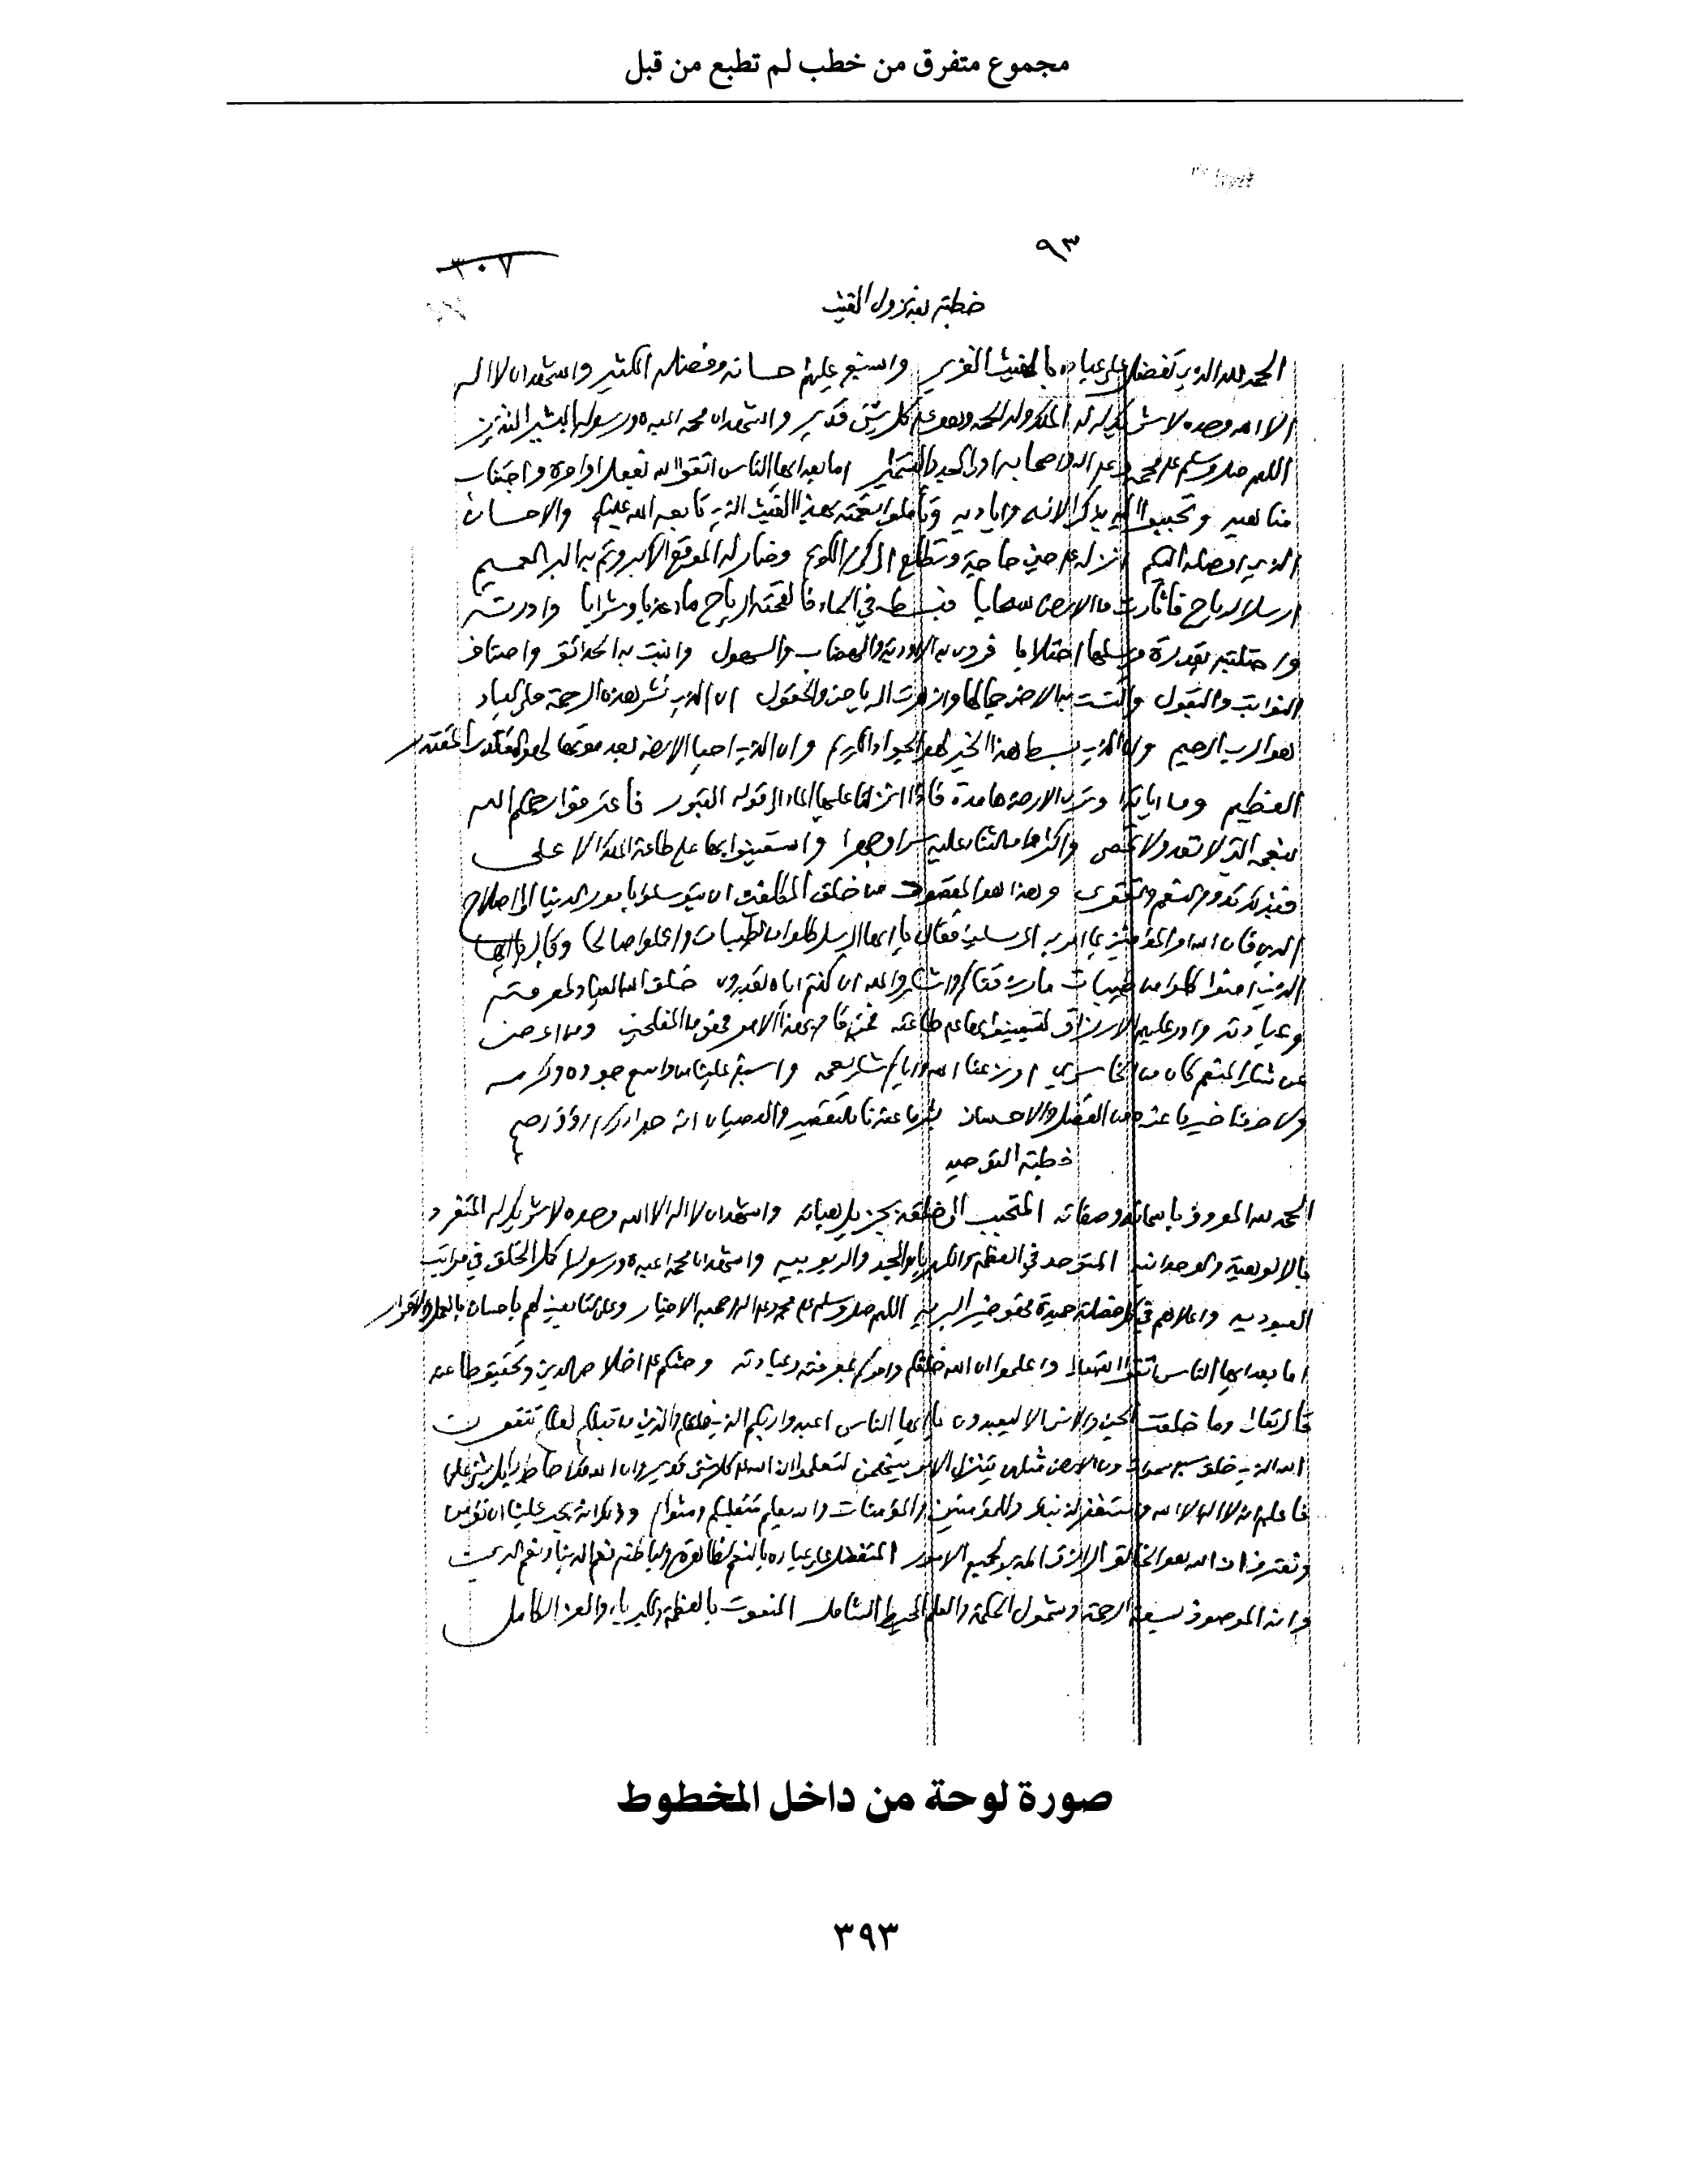 مجموع متفرق من خطب لم تطبع من قبل
٩٣
٣٠٧
خطبة بعد نزول الغيث
الحمد لله الذي تفضل على عباده بالغيث الغزير واسبغ عليهم احسانه وفضله الكثير واشهد ان لا اله
الا الله وحده لا شريك له له الملك وله الحمد وهو على كل شيء قدير واشهد ان محمدا عبده ورسوله البشير النذير
اللهم صل وسلم على محمد وعلى اله واصحابه اولي الجد والتشمير اما بعد ايها الناس اتقوا الله بفعل اوامره واجتناب
مناهيه وتحببوا اليه بذكر الائه واياديه وتأملوا نعمته بهذا الغيث الذي تابعه الله عليكم والاحسان
الذي اوصله اليكم انزله على حين حاجة وتطلع الى كرم الكريم وصار له الموقع الاكبر وتم به البر العميم
ارسل الرياح فاثارت من الارض سحابا فبسطه في السماء فالقحته الرياح ماء عذبا وشرابا وادرته
واحتلبته بقدرة مرسلها احتلابا فروى به الاودية والهضاب والسهول وانبت به الحدائق واصناف
النوابت والبقول واكتست به الارض جمالها وازهرت الرياض والحقول ان الذي نشر هذه الرحمة على العباد
لهو الرب الرحيم وان الذي بسط هذا الخير لهو الجواد الكريم وان الذي احيا الارض بعد موتها لهو القادر المقتدر
العظيم ومن اياته وترى الارض هامدة فاذا انزلنا عليها الماء الى قوله القبور فاعترفوا رحمكم الله
بنعمه التي لا تعد ولا تحصى واكثروا من الثناء عليه سرا وجهرا واستعينوا بها على طاعة الملك الاعلى
فبذلك تدوم النعم والتقوى وهذا هو المقصود من خلق المكلفين ان يتوسلوا بامور الدنيا الى اصلاح
الدين فان الله امر المؤمنين بما امر به المرسلين فقال يا ايها الرسل كلوا من الطيبات واعملوا صالحا وقال يا ايها
الذين امنوا كلوا من طيبات ما رزقناكم واشكروا لله ان كنتم اياه تعبدون خلق الله العباد لمعرفته
وعبادته وادر عليهم الارزاق ليستعينوا بها على طاعته فمن قام بهذا الامر فهو من المفلحين ومن اعرض
عن شكر المنعم كان من الخاسرين اوزعنا الله واياكم شكر نعمه واسبغ علينا من واسع جوده وكرمه
ولا حرمنا خير ما عنده من الفضل والاحسان بشر ما عندنا من التقصير والعصيان انه جواد كريم رؤوف رحيم
خطبة التوحيد
الحمد لله المعروف باسمائه وصفاته المتحبب الى خلقه بجزيل هباته واشهد ان لا اله الا الله وحده لا شريك له المتفرد
بالالوهية والوحدانية المتوحد في العظمة والكبرياء والمجد والربوبية واشهد ان محمدا عبده ورسوله اكمل الخلق في مراتب
العبودية واعلاهم في كل خصلة حميدة فهو خير البرية اللهم صل وسلم على محمد وعلى اله وصحبه الاخيار وعلى التابعين لهم باحسان بالعمل والاقرار
اما بعد ايها الناس اتقوا الله تعالى واعلموا ان الله خلقكم وامركم بمعرفته وعبادته وحثكم على اخلاص الدين وتحقيق طاعته
قال تعالى وما خلقت الجن والانس الا ليعبدون يا ايها الناس اعبدوا ربكم الذي خلقكم والذين من قبلكم لعلكم تتقون
الله الذي خلق سبع سموات ومن الارض مثلهن يتنزل الامر بينهن لتعلموا ان الله على كل شيء قدير وان الله قد احاط بكل شيء علما
فاعلم انه لا اله الا الله واستغفر لذنبك وللمؤمنين والمؤمنات والله يعلم متقلبكم ومثواكم وذلك انه يجب علينا ان نؤمن
ونعترف ان الله هو الخالق الرازق المدبر لجميع الامور المتفضل على عباده بالنعم الظاهرة والباطنة نعم الدنيا ونعم الدين
وانه الموصوف بسعة الرحمة وشمول الحكمة والعلم المحيط الشامل المنعوت بالعظمة والكبرياء والعز الكامل
صورة لوحة من داخل المخطوط
٣٩٣